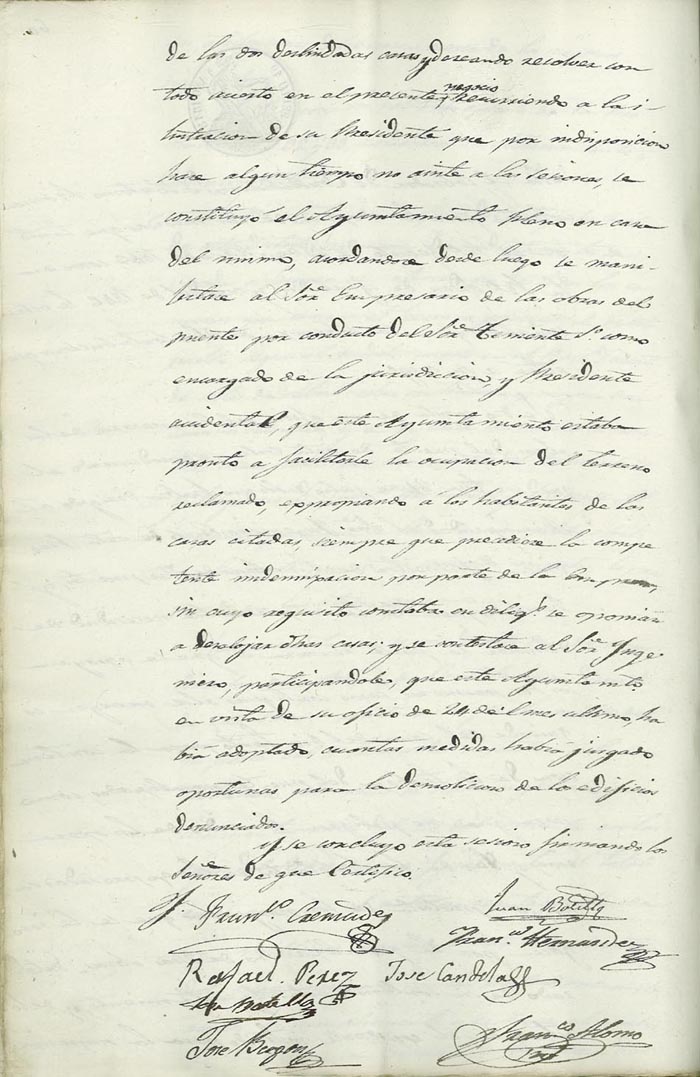 de las dos deslindadas casas y deseando resolver con
todo acierto en el presente negocio recurriendo a la i-
lustracion de su Presidente que por indisposicion
hace algun tiempo no asiste a las sesiones, se
constituyó el Ayuntamiento pleno en casa
del mismo, acordandose desde luego se mani-
festase al Sor. Empresario de las obras del
puente por conducto del Sor. Teniente 1º. como
encargado de la jurisdiccion, y Presidente
accidental, que este Ayuntamiento estaba
pronto a facilitarle la ocupacion del terreno
reclamado, expropiando á los habitantes de las
casas citadas, siempre que precediese la compe
tente indemnizacion por parte de la Empresa,
sin cuyo requisito constaba en diligª. se oponian
a desalojar dhas casas; y se contestase al Sor. Inge
niero, participandole, que este Ayuntamto.
en vista de su oficio de 24 del mes ultimo, ha
bia adoptado, cuantas medidas habia juzgado
oportunas para la demolicion de los edificios
denunciados.
Y se concluyo esta sesion firmando los
Señores de que Certifico.
Franco. Cremades
Juan Botella
Franco. Hernandez
Rafael Perez
Jose Candela
Botella
Jose
Franco. Alomo